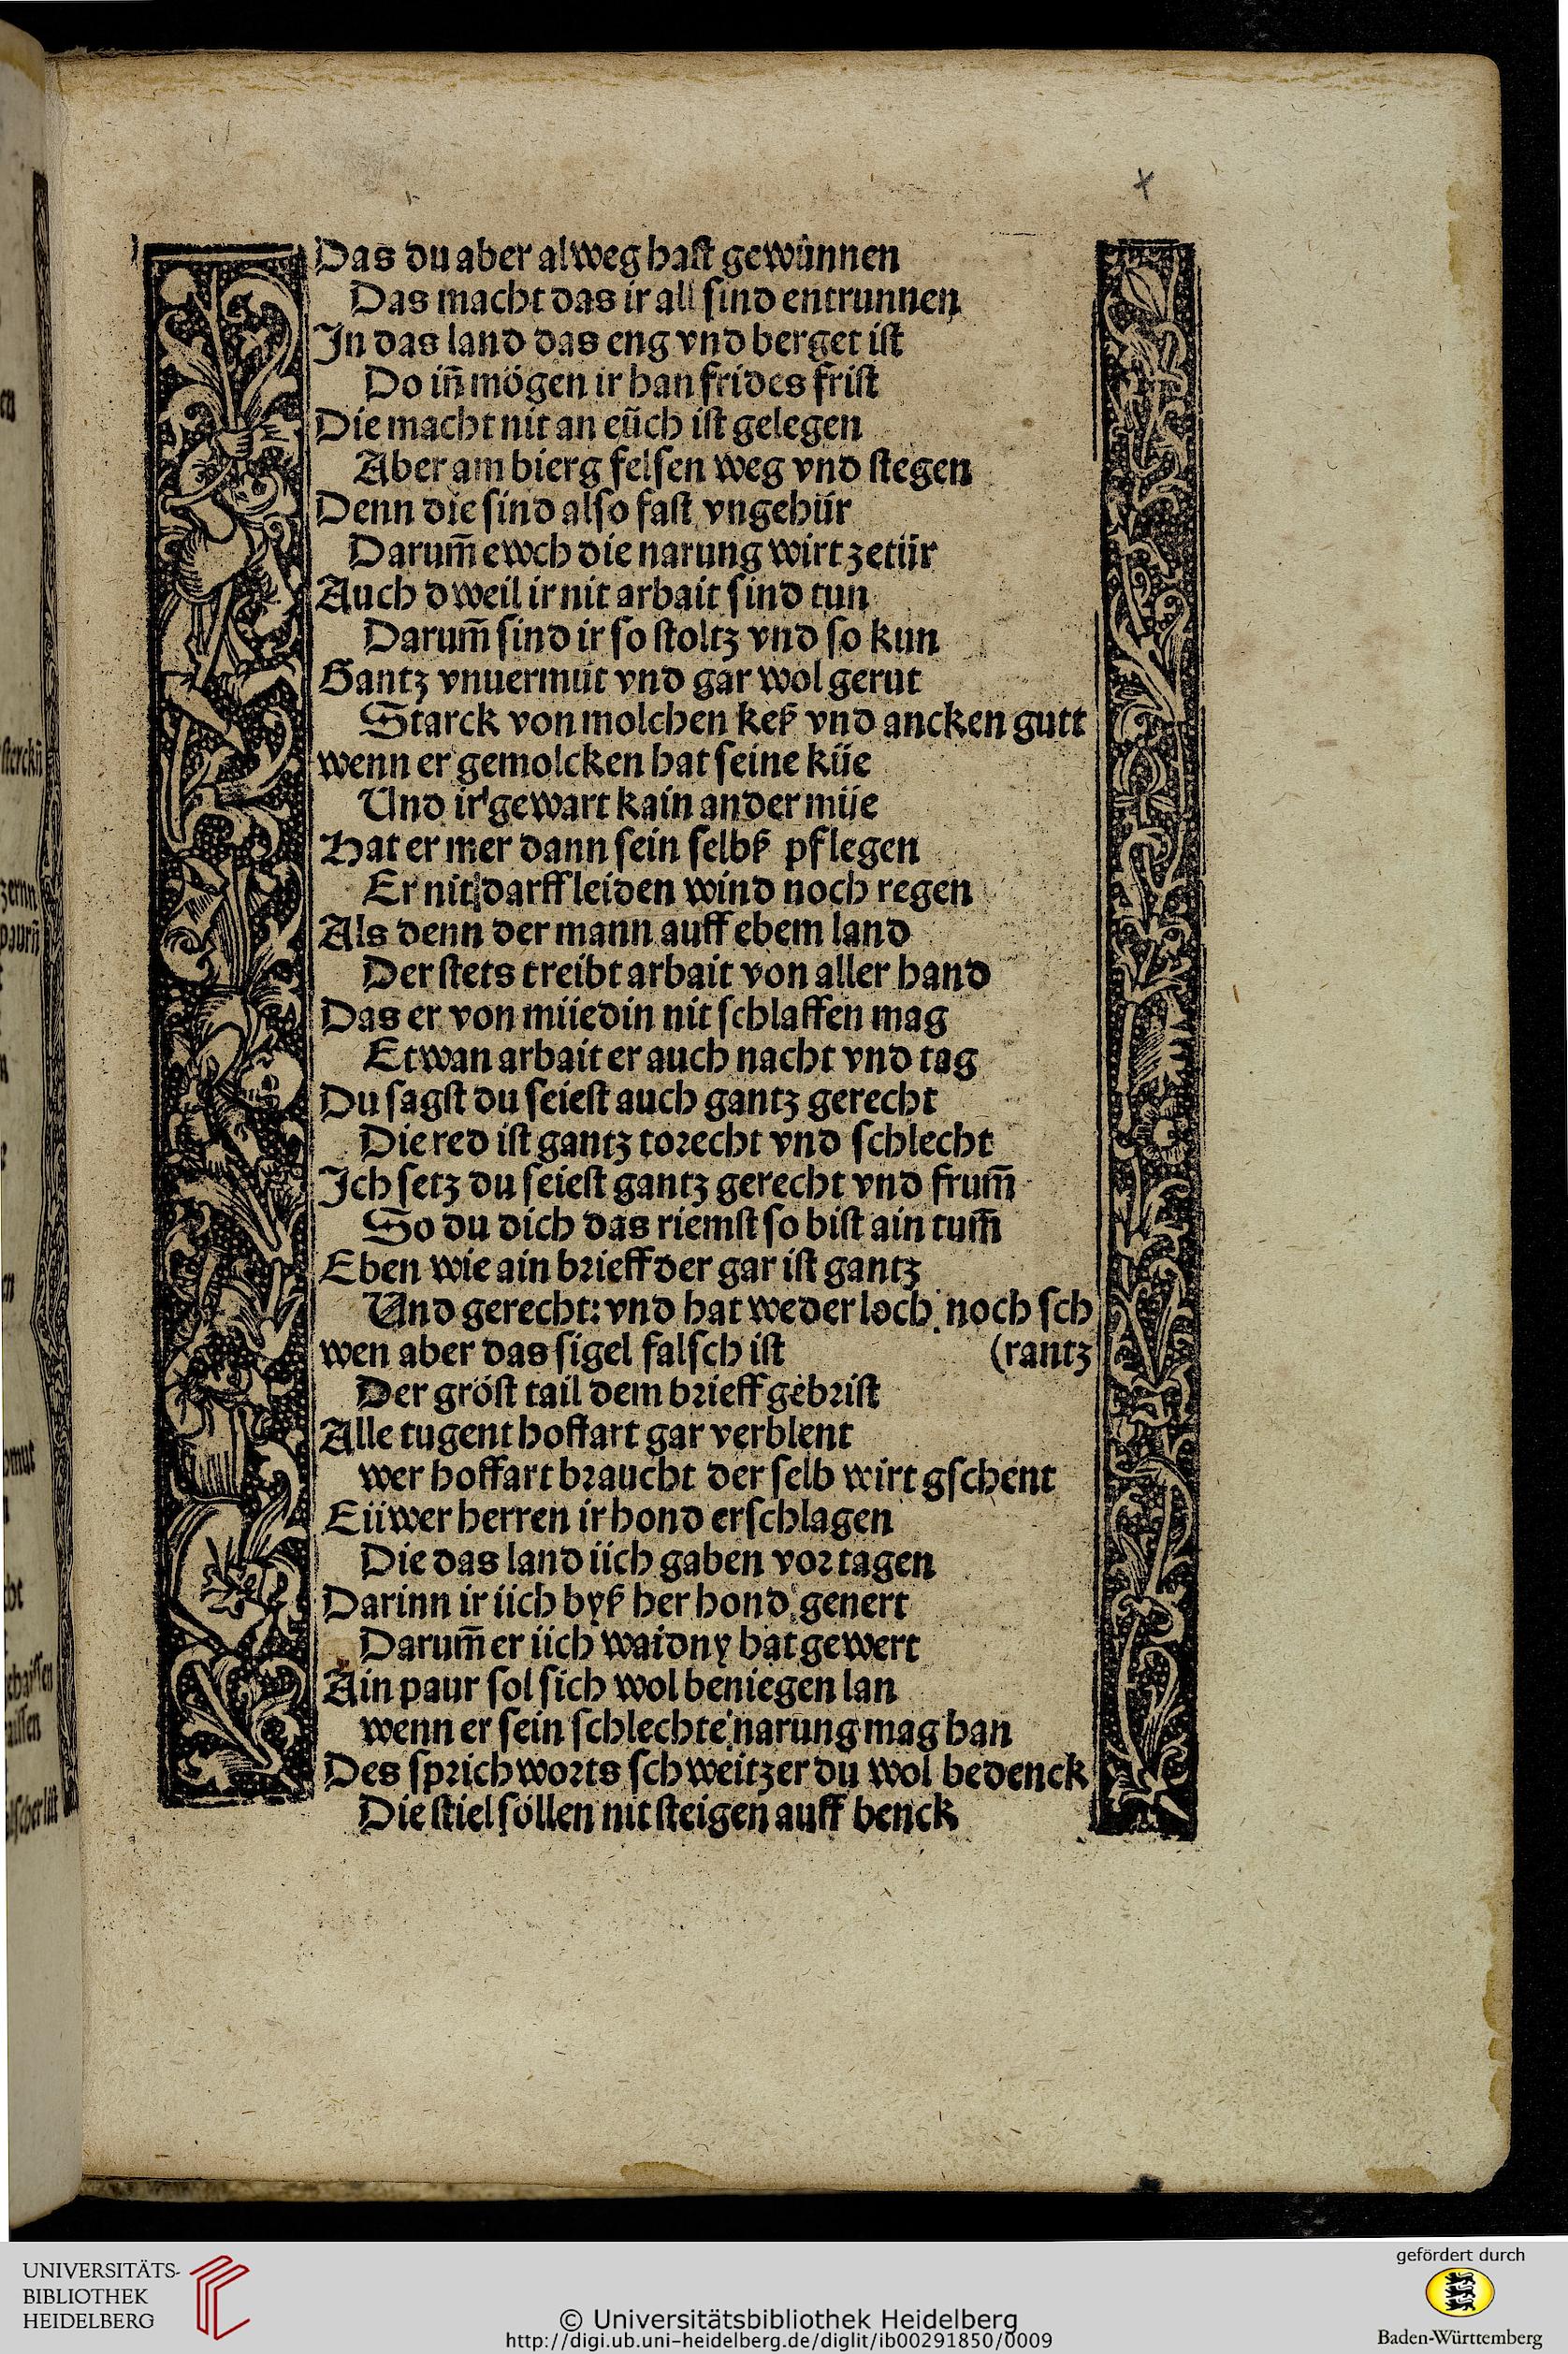 Das du aber alweg haſt gewûnnen
Das macht das ir all ſind entrunnen
In das land das eng vnd berget iſt
Do iñ mögen ir han frides friſt
Die macht nit an eüch iſt gelegen
Aber am bierg felſen weg vnd ſtegen
Denn die ſind alſo faſt vngehür
Darum̃ ewch die narung wirt zetür
Auch dweil ir nit arbait ſind tun
Darum̃ ſind ir ſo ſtoltz vnd ſo kun
Gantz vnuermüt vnd gar wol gerut
Starck von molchen keß vnd ancken gutt
wenn er gemolcken hat ſeine küe
Und ir gewart kain ander müe
Hat er mer dann ſein ſelbß pflegen
Er nit darff leiden wind noch regen
Als denn der mann auff ebem land
Der ſtets treibt arbait von aller hand
Das er von müedin nit ſchlaffen mag
Etwan arbait er auch nacht vnd tag
Du ſagſt du ſeieſt auch gantz gerecht
Die red iſt gantz torecht vnd ſchlecht
Ich ſetz du ſeieſt gantz gerecht vnd frum̃
So du dich das riemſt ſo biſt ain tum̃
Eben wie ain brieff der gar iſt gantz
Und gerecht: vnd hat weder loch noch ſch
wen aber das ſigel falſch iſt (rantz
Der gröſt tail dem brieff gebriſt
Alle tugent hoffart gar verblent
wer hoffart braucht der ſelb wirt gſchent
Eüwer herren ir hond erſchlagen
Die das land üch gaben vor tagen
Darinn ir üch byß her hond genert
Darum̃ er üch waidny hat gewert
Ain paur ſol ſich wol beniegen lan
wenn er ſein ſchlechte narung mag han
Des ſprichworts ſchweitzer du wol bedenck
Die ſtiel ſöllen nit ſteigen auff benck
UNIVERSITÄTS-
BIBLIOTHEK
HEIDELBERG
© Universitätsbibliothek Heidelberg
http://digi.ub.uni-heidelberg.de/diglit/ib00291850/0009
gefördert durch
Baden-Württemberg